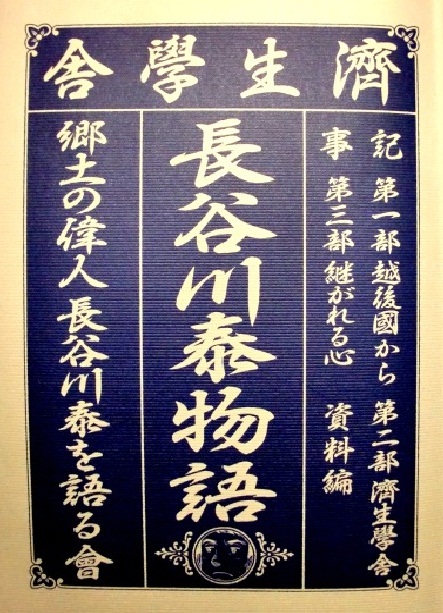 濟生學舎
記 第一部 越後國から 第二部 濟生學舎
事 第三部 継がれる心 資料編
長谷川泰物語
郷土の偉人 長谷川泰を語る會